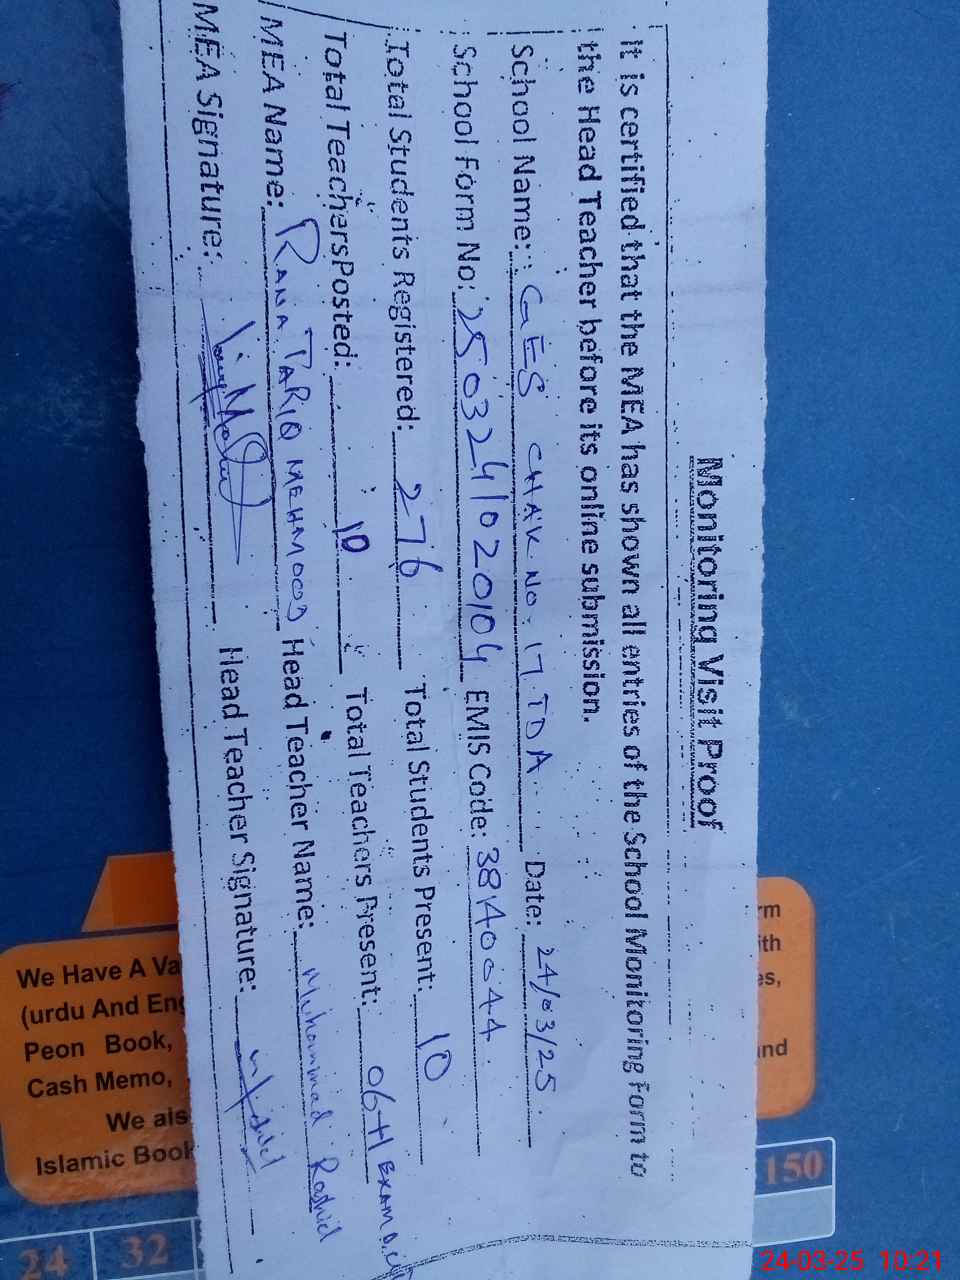 Monitoring Visit Proof
It is certified that the MEA has shown all entries of the School Monitoring Form to
the Head Teacher before its online submission.
School Name: GES CHAK NO. 17 TDA Date: 24/03/25
School Form No: 2503241020104 EMIS Code: 38140044
Total Students Registered: 276 Total Students Present: 10
Total Teachers Posted: 10 Total Teachers Present: 06+1 EXAM D.
MEA Name: RANA TARIQ MEHMOOD Head Teacher Name: Muhammad Rashid
MEA Signature: Head Teacher Signature:
We Have A Va
(urdu And Eng
Peon Book,
Cash Memo,
We als
Islamic Book
rm
ith
es,
and
150
24 32
24-03-25 10:21